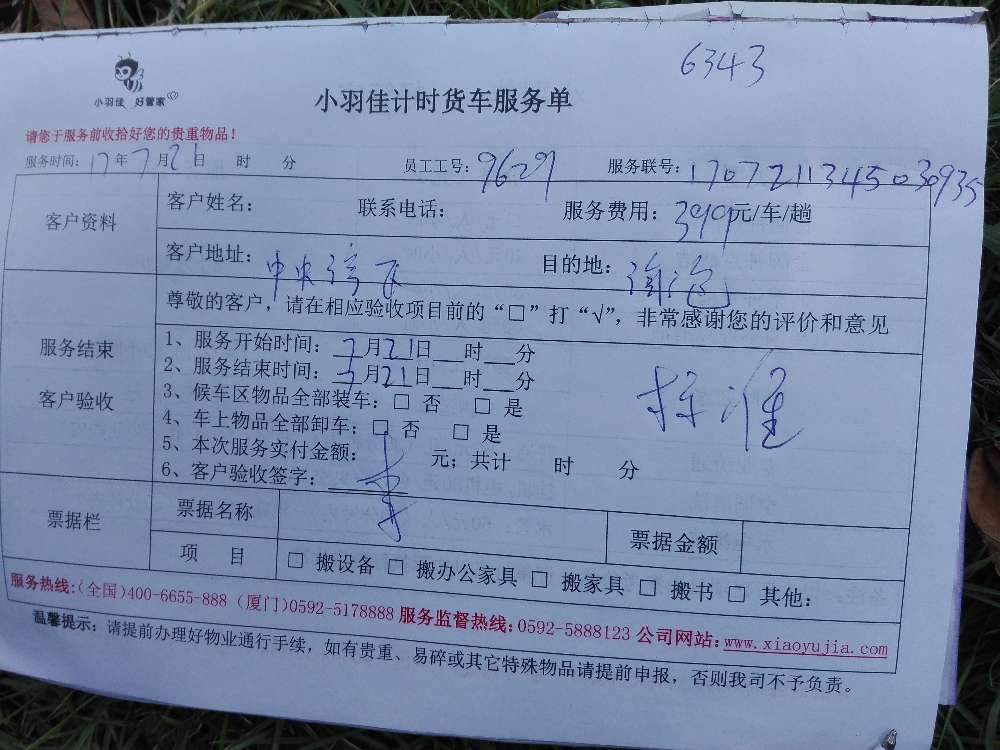 6343
小羽佳 好管家
小羽佳计时货车服务单
请您于服务前收拾好您的贵重物品！
服务时间：17年7月21日 时 分 员工工号：9629 服务联号：1707211345030935
客户资料
客户姓名： 联系电话： 服务费用：399元/车/趟
客户地址：中央 目的地：
服务结束
客户验收
尊敬的客户，请在相应验收项目前的“□”打“√”，非常感谢您的评价和意见
1、服务开始时间：7月21日___时___分
2、服务结束时间：7月21日___时___分
3、候车区物品全部装车：□ 否 □ 是
4、车上物品全部卸车：□ 否 □ 是
5、本次服务实付金额： 元；共计 时 分
6、客户验收签字：
票据栏
票据名称 票据金额
项 目 □ 搬设备 □ 搬办公家具 □ 搬家具 □ 搬书 □ 其他：
服务热线:(全国)400-6655-888 (厦门)0592-5178888 服务监督热线:0592-5888123 公司网站:www.xiaoyujia.com
温馨提示：请提前办理好物业通行手续，如有贵重、易碎或其它特殊物品请提前申报，否则我司不予负责。